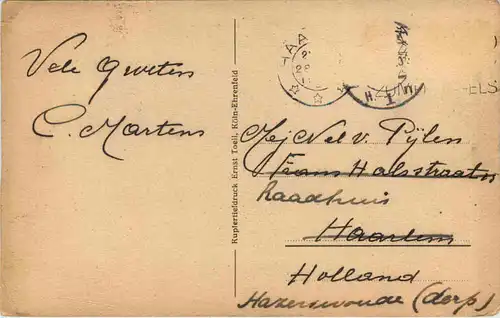 Vele Groeten
C. Martens
Kupfertiefdruck Ernst Toell, Köln-Ehrenfeld
HAA
Mej Nel v. Pijlen
Frans Halsstraat
Raadhuis
Haarlem
Holland
Hazerswoude (dorp)